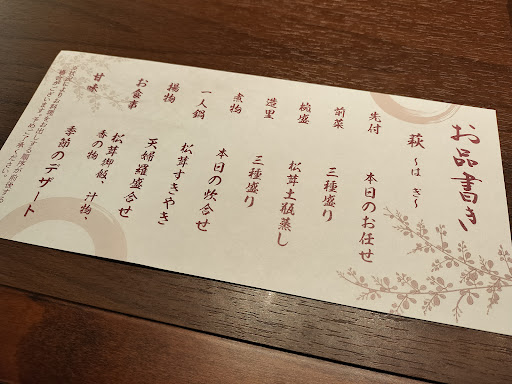 お品書き
萩 ～はぎ～
先付 本日のお任せ
前菜 三種盛り
椀盛 松茸土瓶蒸し
造里 三種盛り
煮物 本日の炊合せ
一人鍋 松茸すきやき
揚物 天婦羅盛合せ
お食事 松茸御飯、汁物
香の物
甘味 季節のデザート
場合がございます。予めご了承ください。